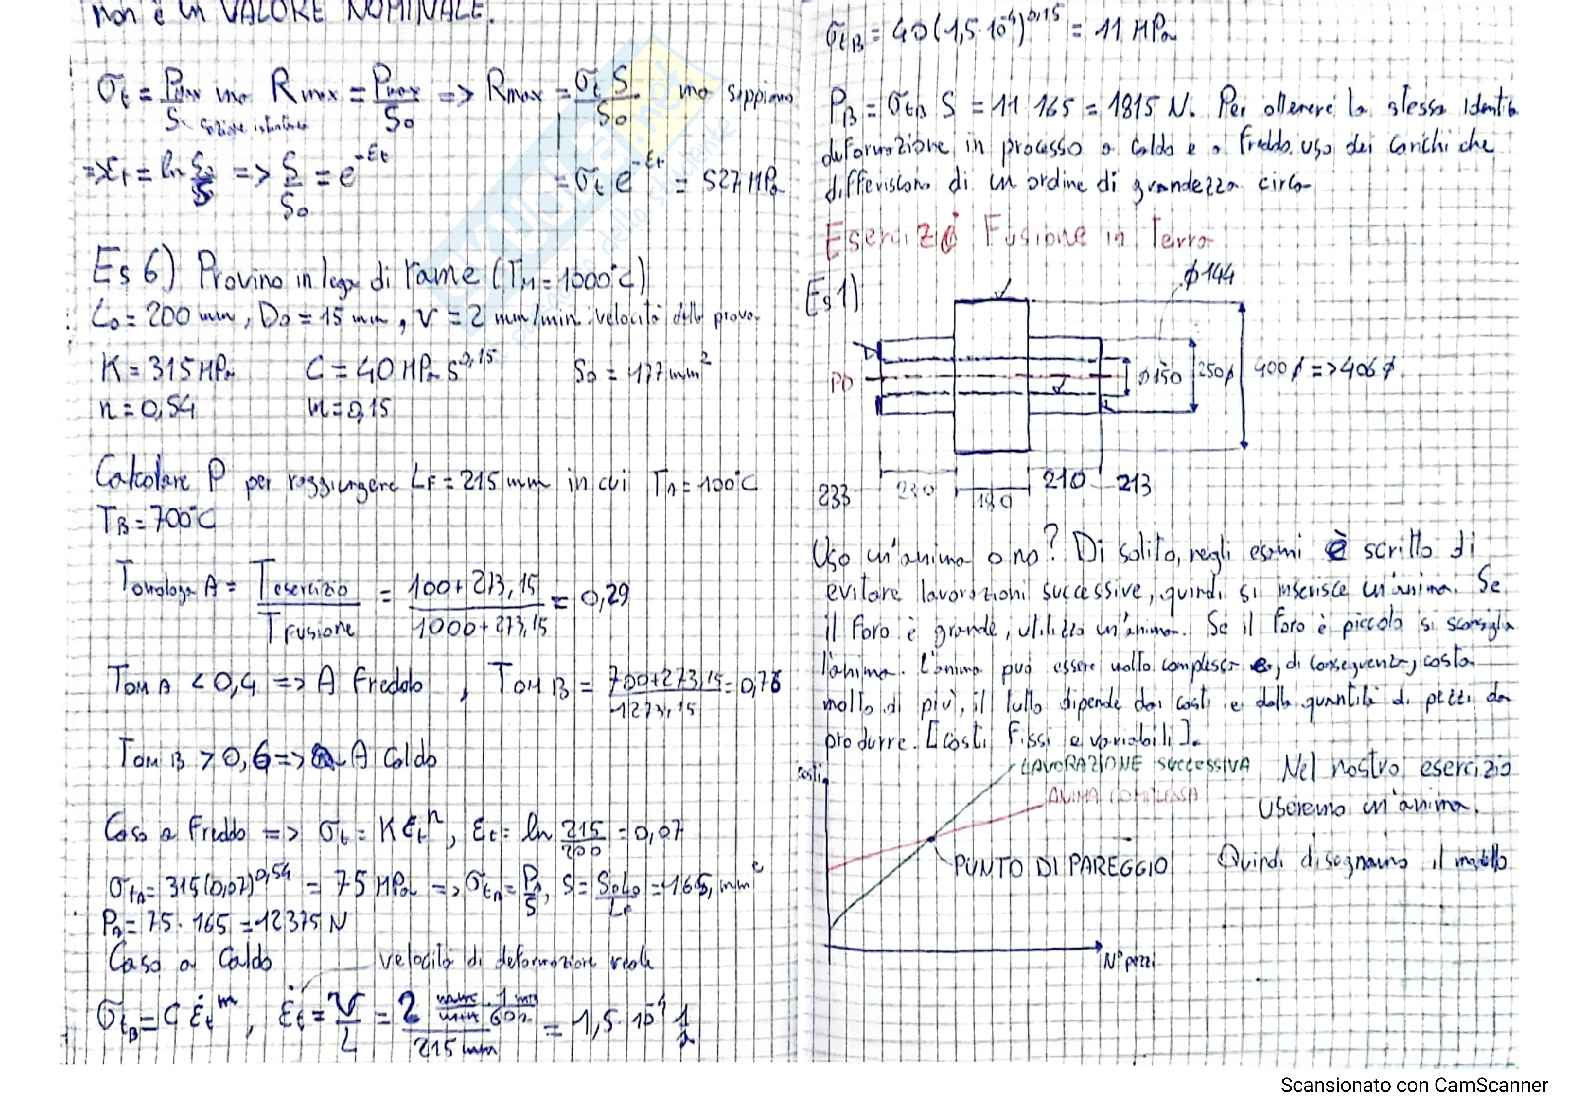 non è un VALORE NOMINALE.
σt = Pmax/S ma Rmax = Pmax/S0 => Rmax = σt S/S0 ma sappiamo
sezione istantanea
=> εt = ln S0/S => S/S0 = e^-εt = σt e^-εt = 527 MPa
Es 6) Provino in lega di rame (TM = 1000°C)
L0 = 200 mm, D0 = 15 mm, v = 2 mm/min velocità della prova.
K = 315 MPa C = 40 MPa s^0,15 S0 = 177 mm²
n = 0,54 m = 0,15
Calcolare P per raggiungere LF = 215 mm in cui TA = 100°C
TB = 700°C
Tomologa A = Tesercizio/Tfusione = 100+273,15/1000+273,15 = 0,29
TOM A < 0,4 => A Freddo , TOM B = 700+273,15/1273,15 = 0,76
TOM B > 0,6 => A Caldo
Caso a Freddo => σt = K εt^n, εt = ln 215/200 = 0,07
σtA = 315(0,07)^0,54 = 75 MPa => σtA = PA/S, S = S0L0/LF = 165 mm²
PA = 75 · 165 = 12375 N
Caso a Caldo velocità di deformazione reale
σtB = C ε̇t^m , ε̇t = v/L = 2 mm/min · 1 min/60s / 215 mm = 1,5 · 10^-4 1/s
σtB = 40(1,5·10^-4)^0,15 = 11 MPa
PB = σtB S = 11 · 165 = 1815 N. Per ottenere la stessa identica
deformazione in processo a caldo e a freddo uso dei carichi che
differiscono di un ordine di grandezza circa
Esercizi Fusione in Terra
Es 1)
φ144
PD
φ150 250φ 400φ => 406φ
233 230 180 210 213
Uso un'anima o no? Di solito, negli esami è scritto di
evitare lavorazioni successive, quindi si inserisce un'anima. Se
il foro è grande, utilizzo un'anima. Se il foro è piccolo si sconsiglia
l'anima. L'anima può essere molto complessa e, di conseguenza, costa
molto di più, il tutto dipende dai costi e dalla quantità di pezzi da
produrre. [costi fissi e variabili].
costi
LAVORAZIONE SUCCESSIVA
ANIMA COMPLESSA
PUNTO DI PAREGGIO
N° pezzi
Nel nostro esercizio
useremo un'anima.
Quindi disegnamo il modello
Scansionato con CamScanner